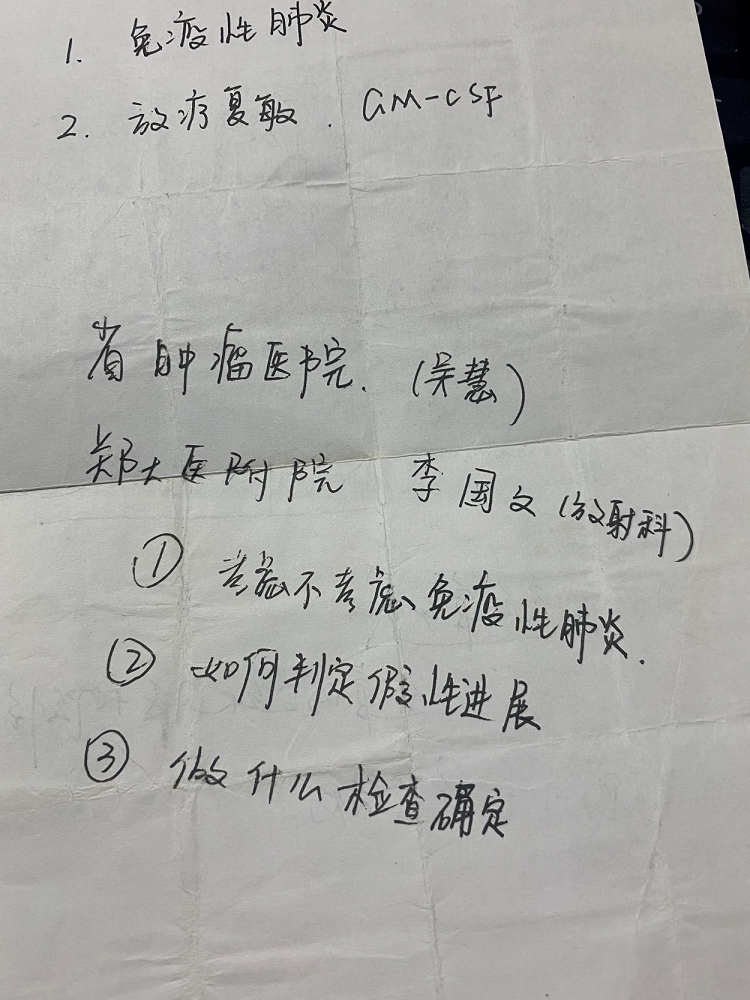 1. 免疫性肺炎
2. 放疗复敏. GM-CSF
省肿瘤医院. (吴慧)
郑大医附院 李国文(放射科)
① 考虑不考虑免疫性肺炎.
② 如何判定假性进展
③ 做什么检查确定